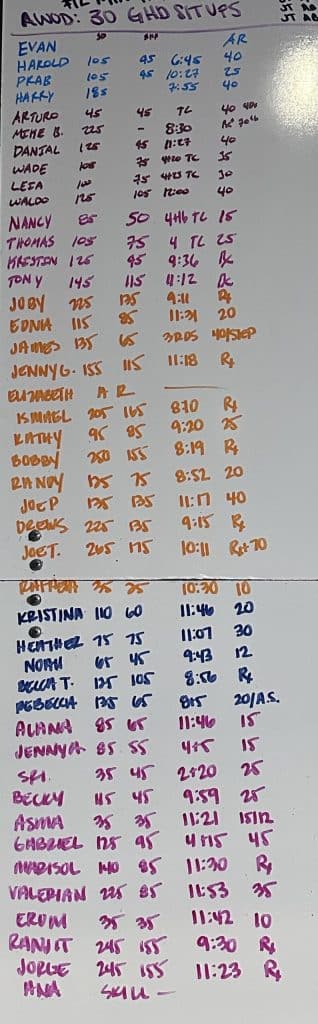 AWOD: 30 GHD SITUPS
AR
EVAN
HAROLD 105 95 6:45 40
PRAB 105 95 10:27 25
HARRY 185 7:55 40
ARTURO 45 45 TC 40
MIKE B. 225 - 8:30
DANIAL 125 95 11:27 40
WADE 105 75 4+20 TC 35
LESA 100 75 4+23 TC 30
WALDO 125 105 12:00 40
NANCY 85 50 4+16 TC 15
THOMAS 105 75 4 TC 25
KRISTEN 125 95 9:36 Rx
TONY 145 115 4:12 Rx
JOBY 225 135 9:11 Rx
EDNA 115 85 11:31 20
JAMES 135 65 3RDS 40/STEP
JENNY G. 155 115 11:18 Rx
ELIZABETH A R
ISMAEL 205 165 8:10 Rx
KATHY 95 85 9:20 25
BOBBY 250 155 8:19 Rx
RANDY 135 75 8:52 20
JOE P 175 135 11:17 40
DREWS 225 135 9:15 Rx
JOE T. 265 175 10:11 Rx+70
35 35 10:30 10
KRISTINA 110 60 11:46 20
HEATHER 75 75 11:07 30
NOAH 65 45 9:43 12
BECCA T. 135 105 8:56 Rx
REBECCA 135 65 8+5 20/A.S.
ALANA 85 65 11:46 15
JENNY A 85 55 4+5 15
SRI. 35 45 2+20 25
BECKY 115 45 9:59 25
ASMA 35 35 11:21 15/12
GABRIEL 125 95 4+15 45
MARISOL 140 85 11:30 Rx
VALERIAN 225 85 11:53 35
ERUM 35 35 11:42 10
RANJIT 245 155 9:30 Rx
JORGE 245 155 11:23 Rx
ANA SKILL —